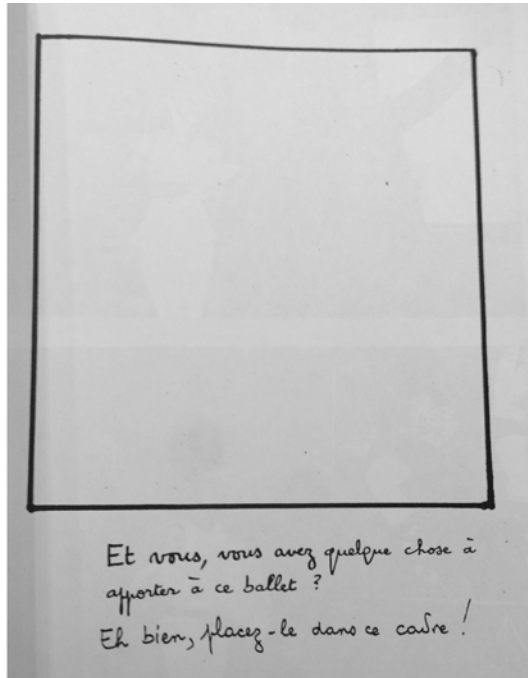 Et vous, vous avez quelque chose à
apporter à ce ballet ?
Eh bien, placez-le dans ce cadre !